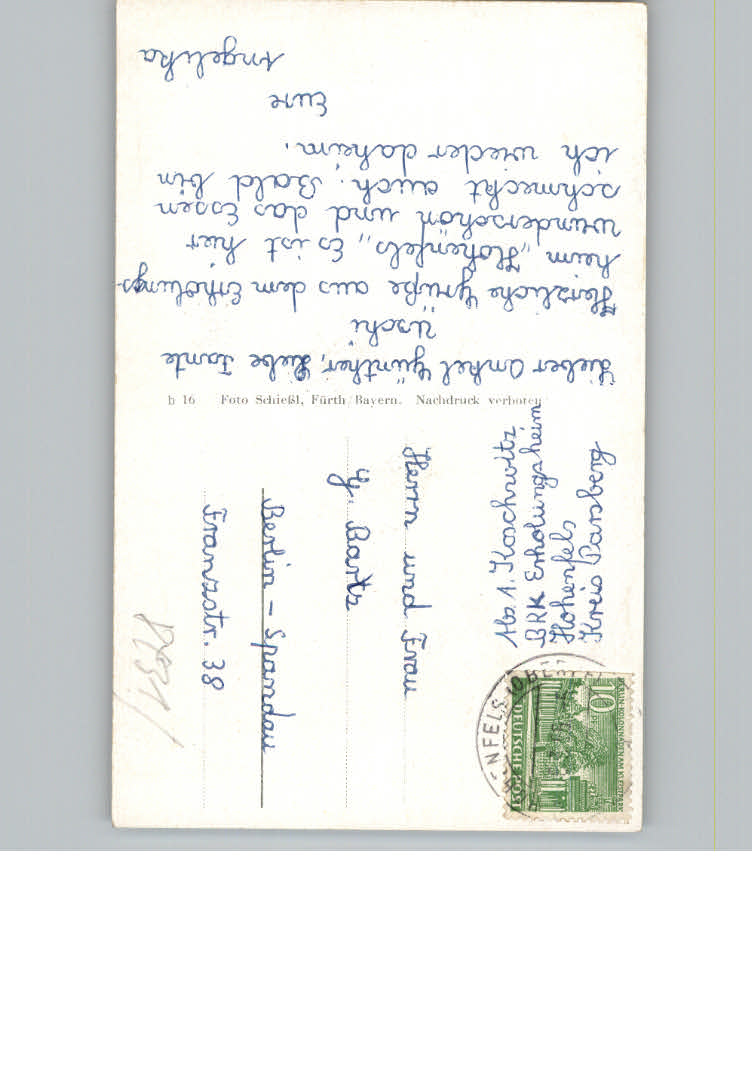 Lieber Onkel Günther, Liebe Tante
Uschi
Herzliche Grüße aus dem Erholungs-
heim „Hohenfels„ Es ist hier
wunderschön und das Essen
schmeckt auch. Bald bin
ich wieder daheim.
Eure
Angelika
h 16 Foto Schießl, Fürth/Bayern. Nachdruck verboten
Abs. A. Koschwitz
BRK Erholungsheim
Hohenfels
Kreis Parsberg
Herrn und Frau
G. Bartz
Berlin - Spandau
Franzstr. 38
10
DEUTSCHE POST
BERLIN-KOLONNADEN AM KLEISTPARK